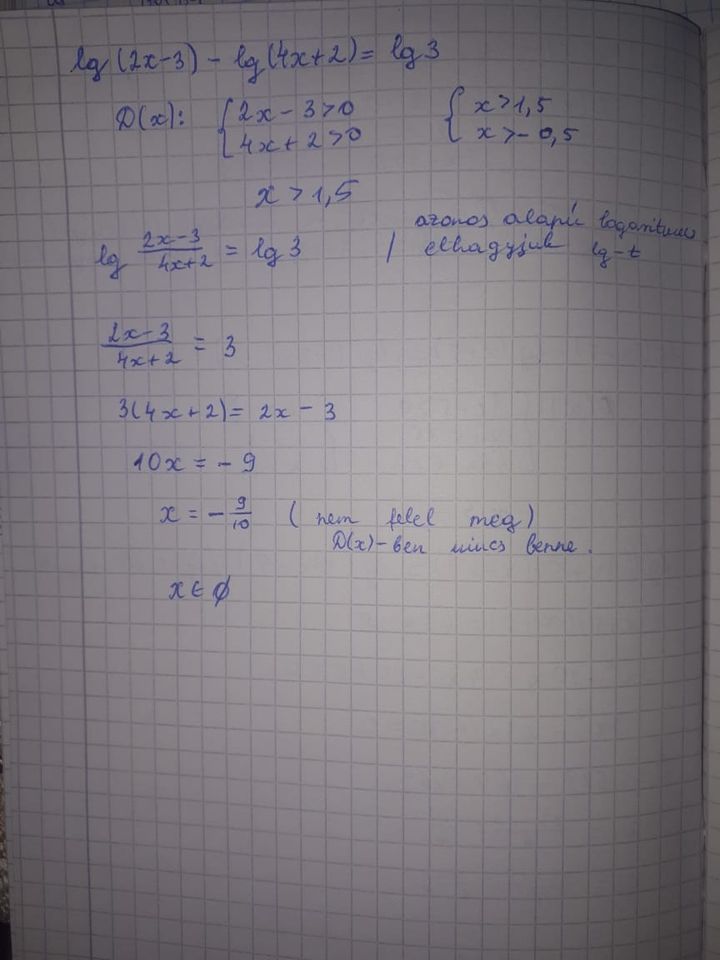 lg (2x-3) - lg (4x+2) = lg 3
D(x): { 2x - 3 > 0 { x > 1,5
4x + 2 > 0 x > - 0,5
x > 1,5
lg (2x-3)/(4x+2) = lg 3 / azonos alapú logaritmus
elhagyjuk lg-t
(2x-3)/(4x+2) = 3
3(4x+2) = 2x - 3
10x = - 9
x = - 9/10 ( nem felel meg )
D(x)-ben nincs benne.
x ∈ ∅